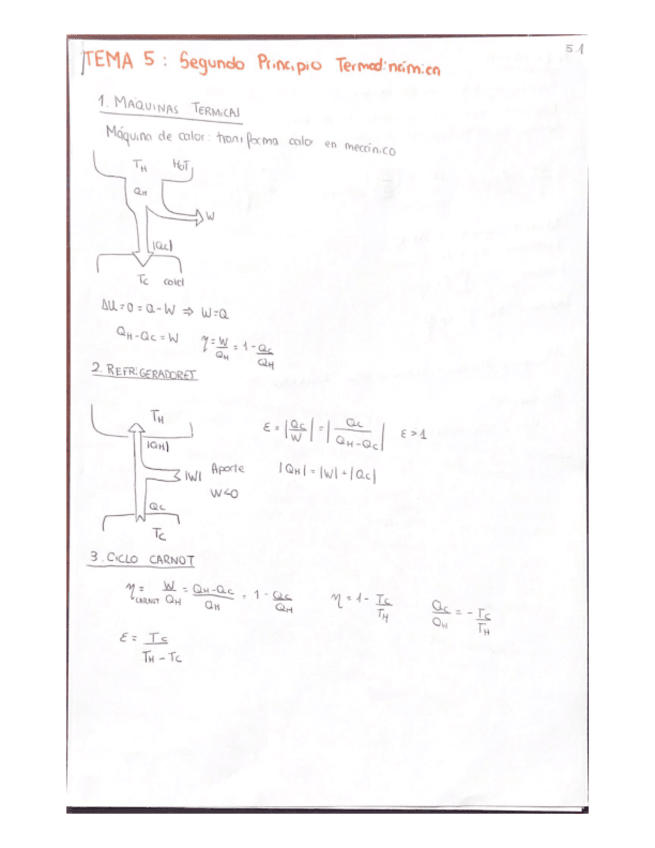 5.1
TEMA 5: Segundo Principio Termodinámica
1. MÁQUINAS TERMICAS
Máquina de calor: transforma calor en mecánico
TH HOT
QH
W
|Qc|
Tc cold
ΔU=0=Q-W ⇒ W=Q
QH-Qc=W η=W/QH=1-Qc/QH
2. REFRIGERADORES
TH
|QH|
ε=|Qc/W|=|Qc/QH-Qc| ε>1
|W| Aporte
W<0
|QH|=|W|+|Qc|
Qc
Tc
3. CICLO CARNOT
ηCARNOT=W/QH=QH-Qc/QH=1-Qc/QH η=1-Tc/TH Qc/QH=-Tc/TH
ε=Tc/TH-Tc